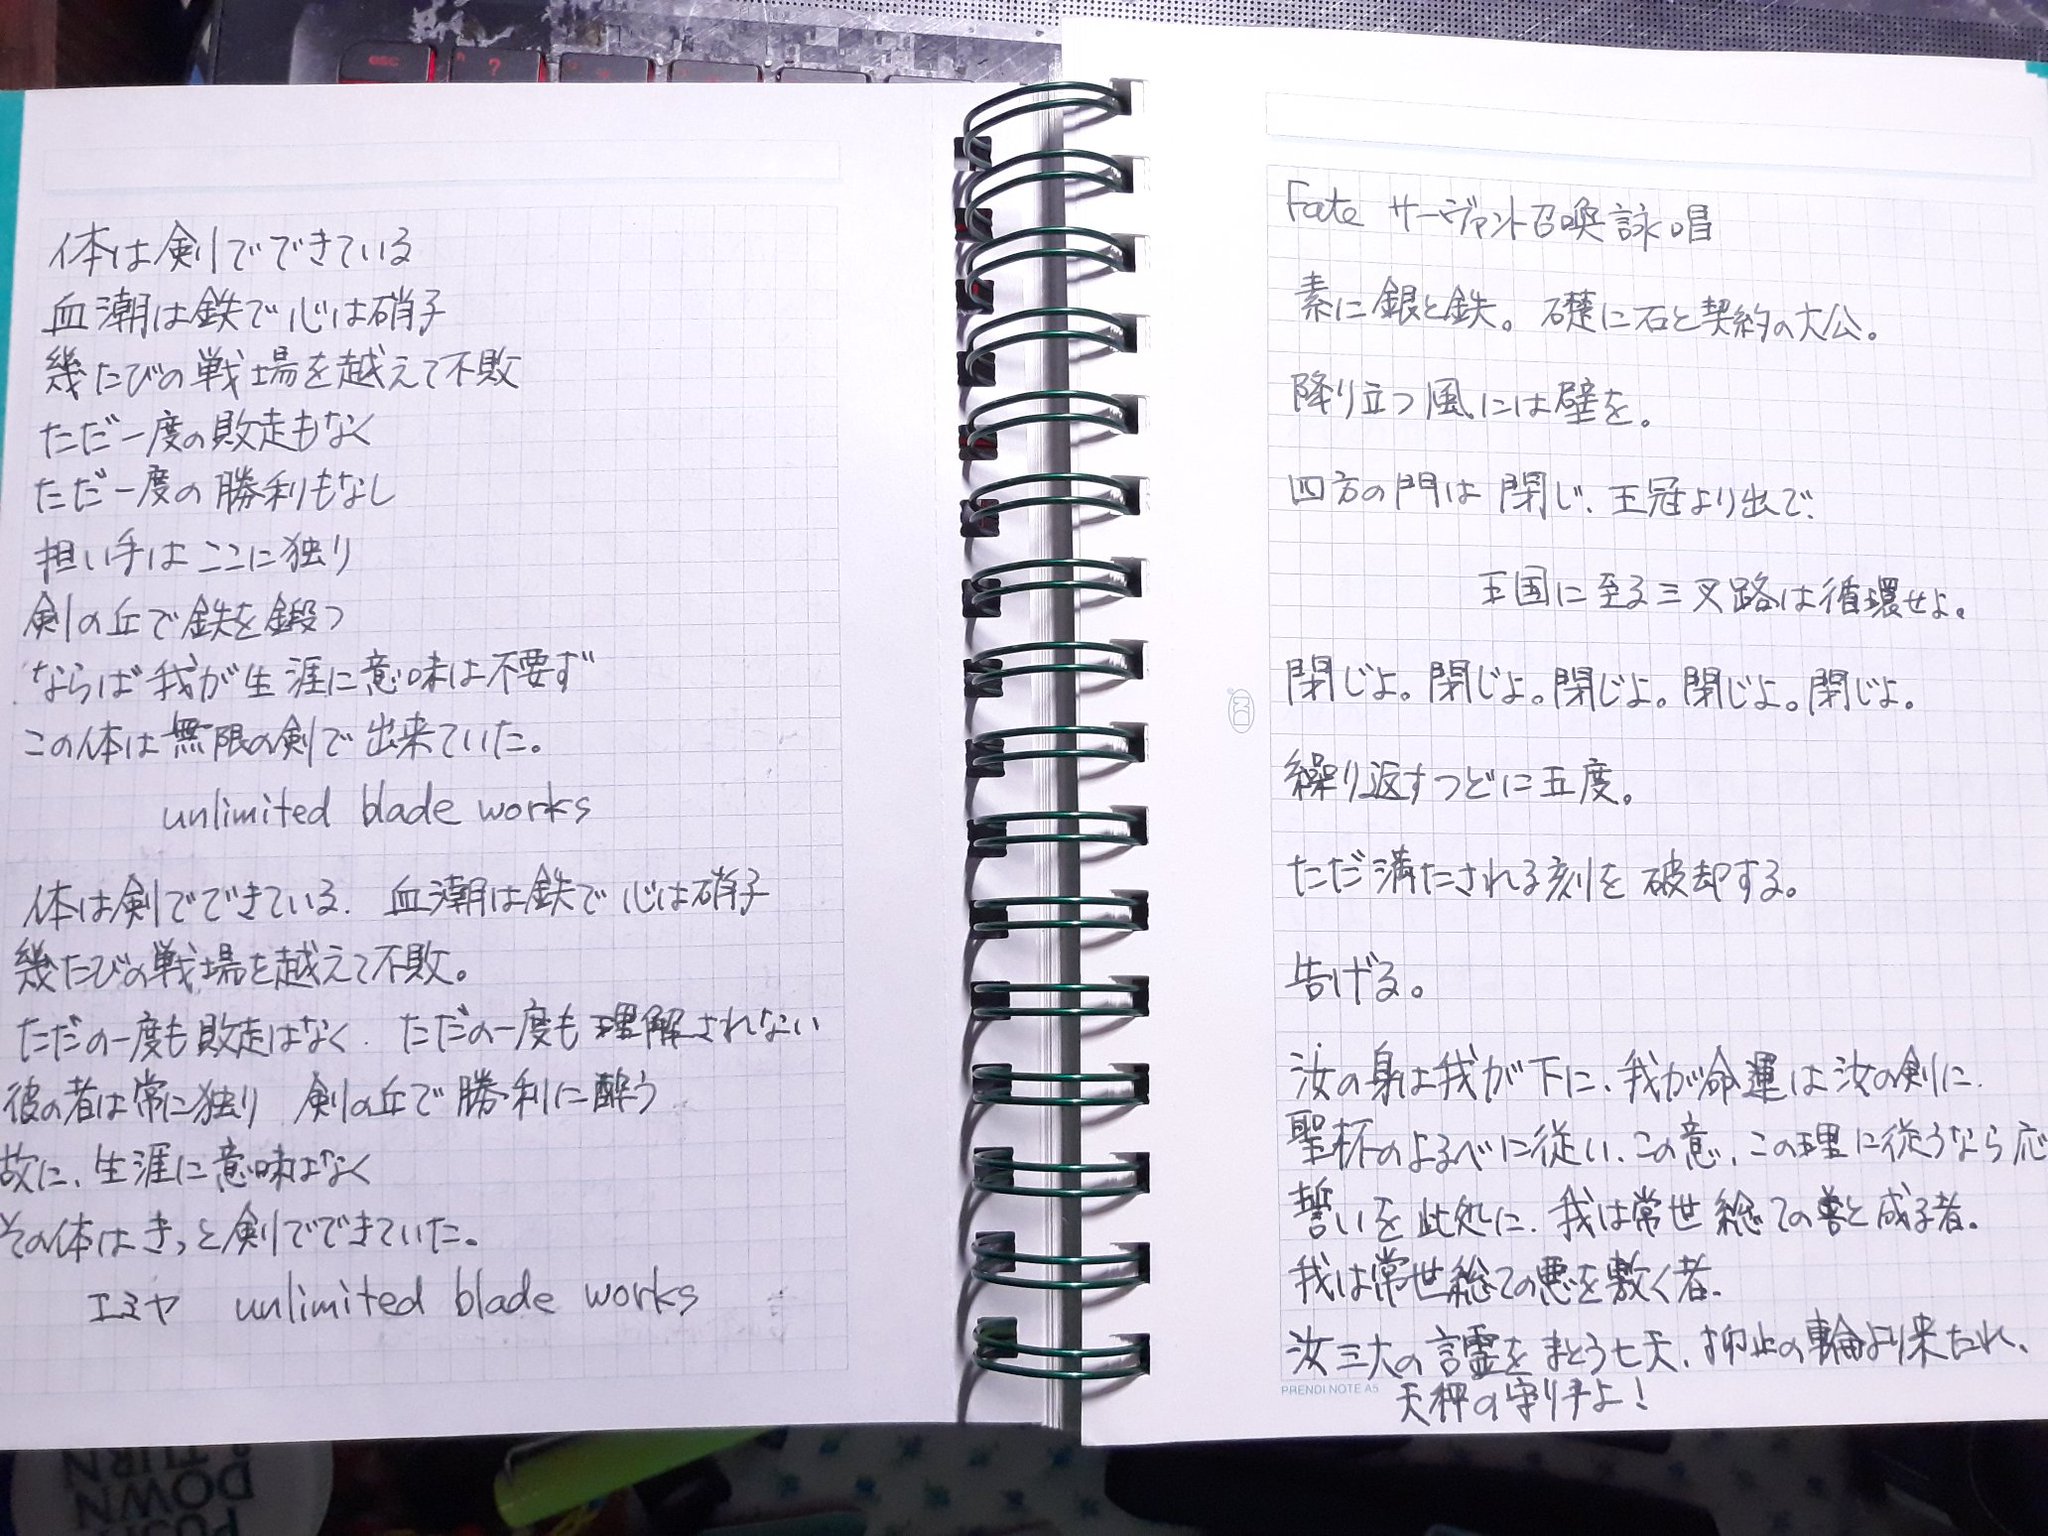 体は剣でできている
血潮は鉄で心は硝子
幾たびの戦場を越えて不敗
ただ一度の敗走もなく
ただ一度の勝利もなし
担い手はここに独り
剣の丘で鉄を鍛つ
ならば我が生涯に意味は不要ず
この体は無限の剣で出来ていた。
unlimited blade works
体は剣でできている. 血潮は鉄で心は硝子
幾たびの戦場を越えて不敗。
ただの一度も敗走はなく. ただの一度も理解されない
彼の者は常に独り 剣の丘で勝利に酔う
故に、生涯に意味はなく
その体はきっと剣でできていた。
エミヤ unlimited blade works
Fate サーヴァント召喚詠唱
素に銀と鉄。礎に石と契約の大公。
降り立つ風には壁を。
四方の門は閉じ、王冠より出で、
王国に至る三叉路は循環せよ。
閉じよ。閉じよ。閉じよ。閉じよ。閉じよ。
繰り返すつどに五度。
ただ満たされる刻を破却する。
告げる。
汝の身は我が下に、我が命運は汝の剣に.
聖杯のよるべに従い、この意、この理に従うなら応
誓いを此処に. 我は常世総ての善と成る者。
我は常世総ての悪を敷く者.
汝三大の言霊をまとう七天、抑止の輪より来たれ、
天秤の守り手よ!
PRENDI NOTE A5
esc
?
PUSH
DOWN
TURN